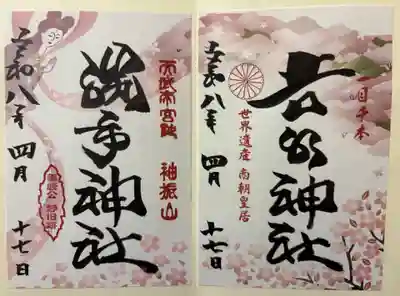 一目千本
吉水神社
世界遺産 南朝皇居
令和八年 四月 十七日
袖振山
勝手神社
令和八年 四月 十七日